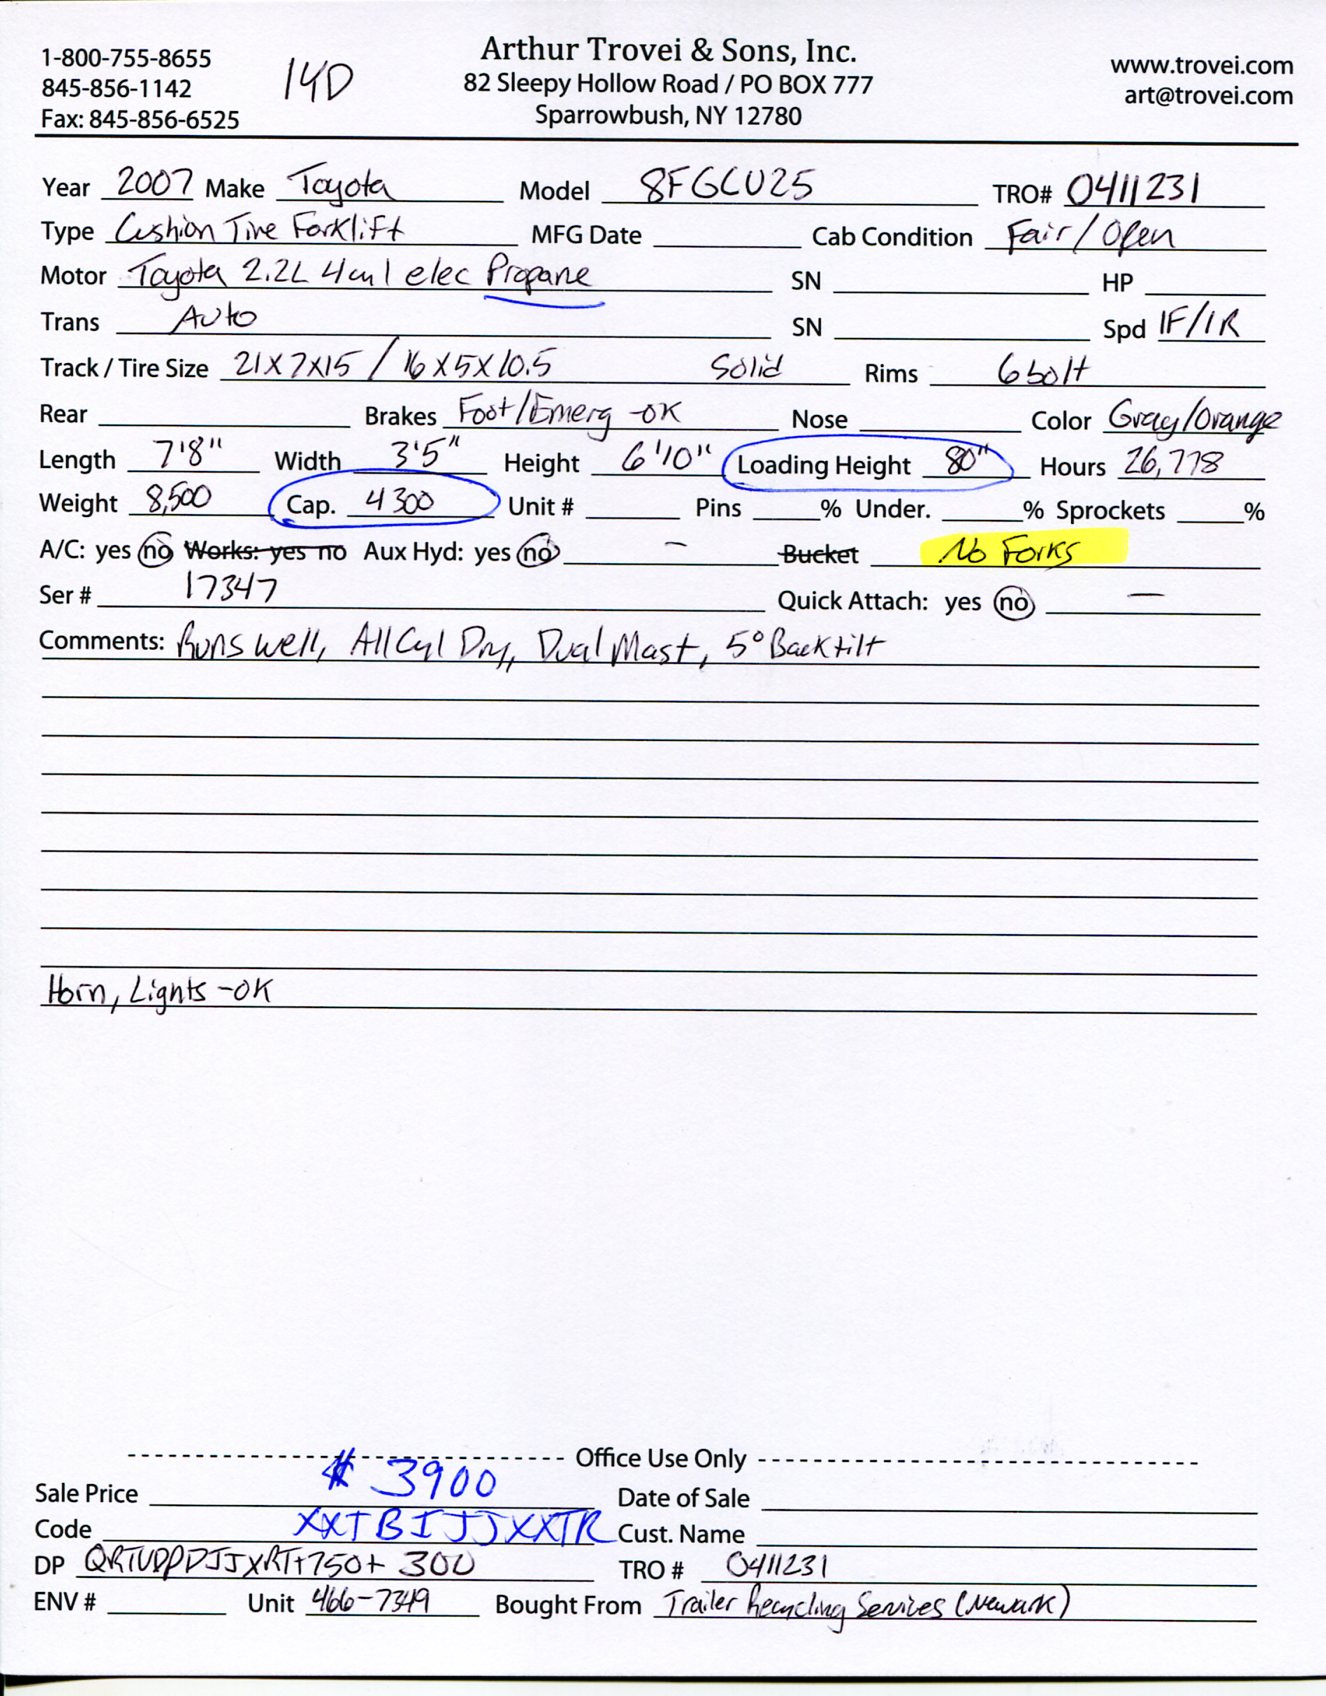 1-800-755-8655
845-856-1142
Fax: 845-856-6525
14D
Arthur Trovei & Sons, Inc.
82 Sleepy Hollow Road / PO BOX 777
Sparrowbush, NY 12780
www.trovei.com
art@trovei.com
Year 2007 Make Toyota Model 8FGCU25 TRO# 0411231
Type Cushion Tire Forklift MFG Date Cab Condition Fair/Open
Motor Toyota 2.2L 4cyl elec Propane SN HP
Trans Auto SN Spd 1F/1R
Track / Tire Size 21x7x15 / 16x5x10.5 Solid Rims 6 bolt
Rear Brakes Foot/Emerg -OK Nose Color Gray/Orange
Length 7'8" Width 3'5" Height 6'10" Loading Height 80" Hours 26,778
Weight 8,500 Cap. 4300 Unit # Pins % Under. % Sprockets %
A/C: yes no Works: yes no Aux Hyd: yes no — Bucket No Forks
Ser # 17347 Quick Attach: yes no —
Comments: Runs well, All Cyl Dry, Dual Mast, 5° Back tilt
Horn, Lights -OK
Office Use Only
Sale Price $ 3900 Date of Sale
Code XXTBIJJXXTR Cust. Name
DP QRTUDPDJJXRT+750+ 300 TRO # 0411231
ENV # Unit 466-7349 Bought From Trailer Recycling Services (Newark)